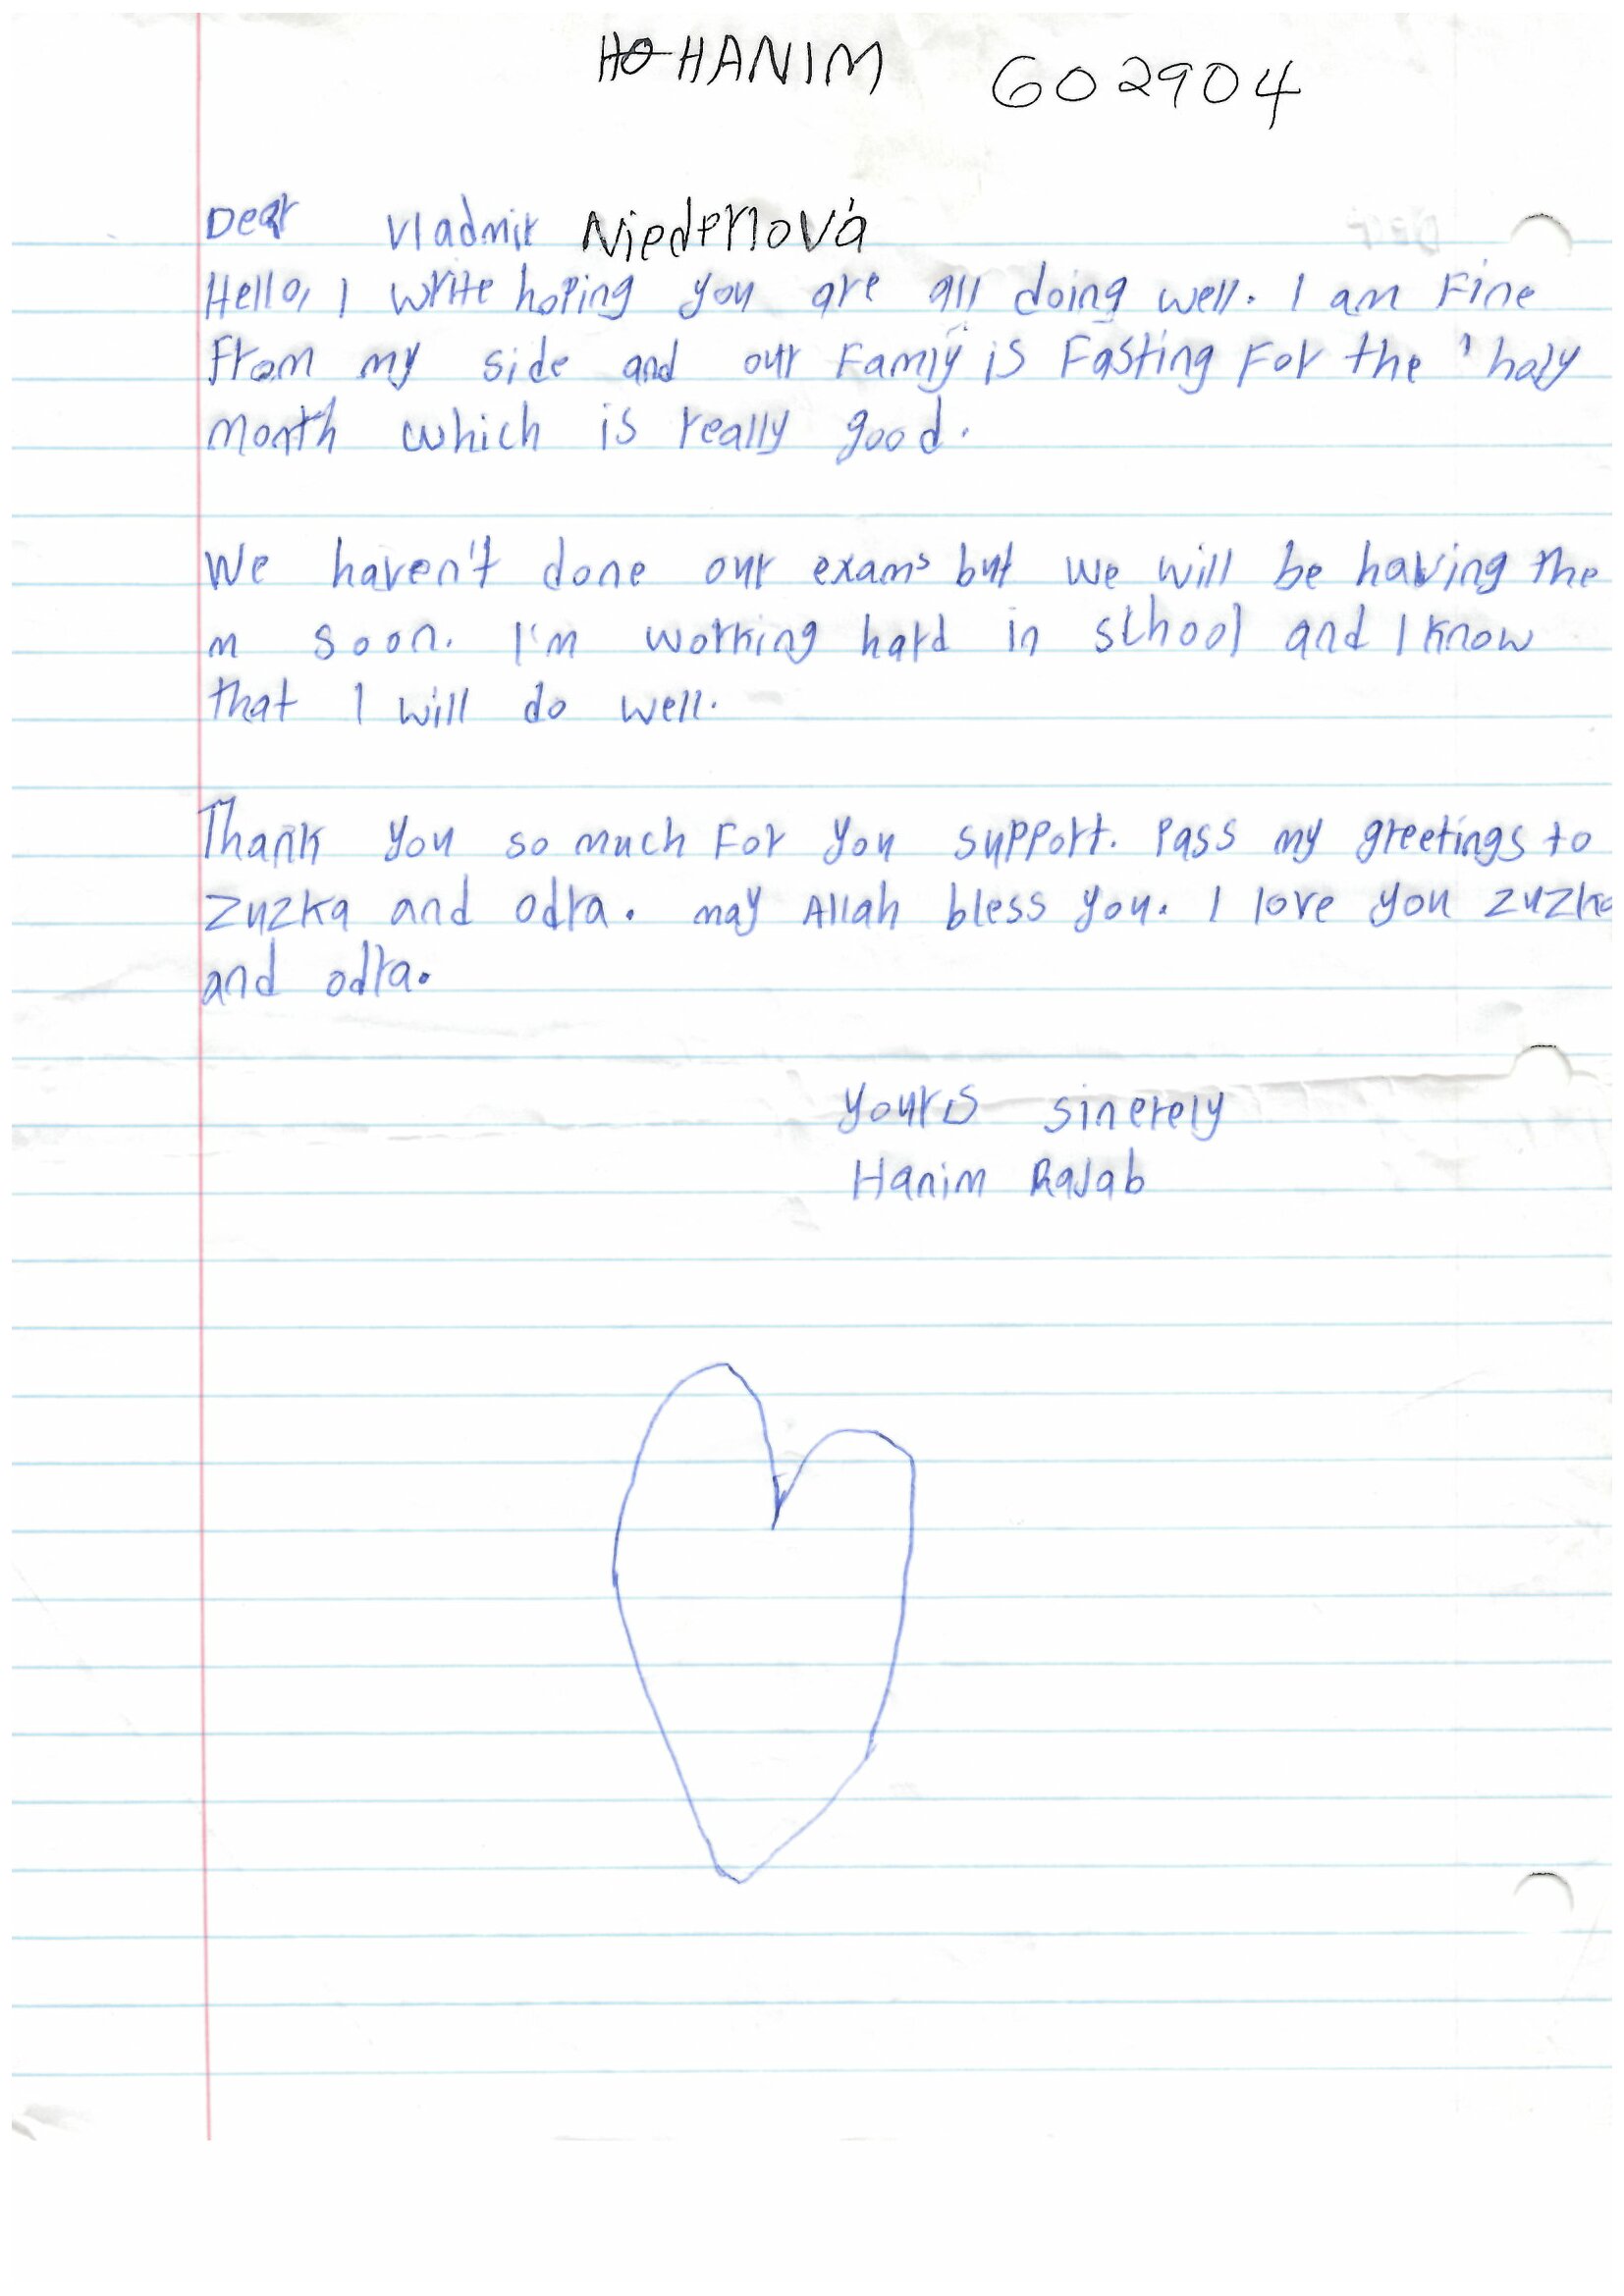 HO HANIM 602904
Dear Vladmir Niedernová
Hello, I write hoping you are all doing well. I am Fine
From my side and our Famiy is Fasting For the holy
month which is really good.
We haven't done our exams but we will be having the
m soon. I'm working hard in school and I know
that I will do well.
Thank you so much For you support. Pass my greetings to
Zuzka and Odra. may Allah bless you. I love you zuzka
and odra.
yours sinerely
Hanim Rajab